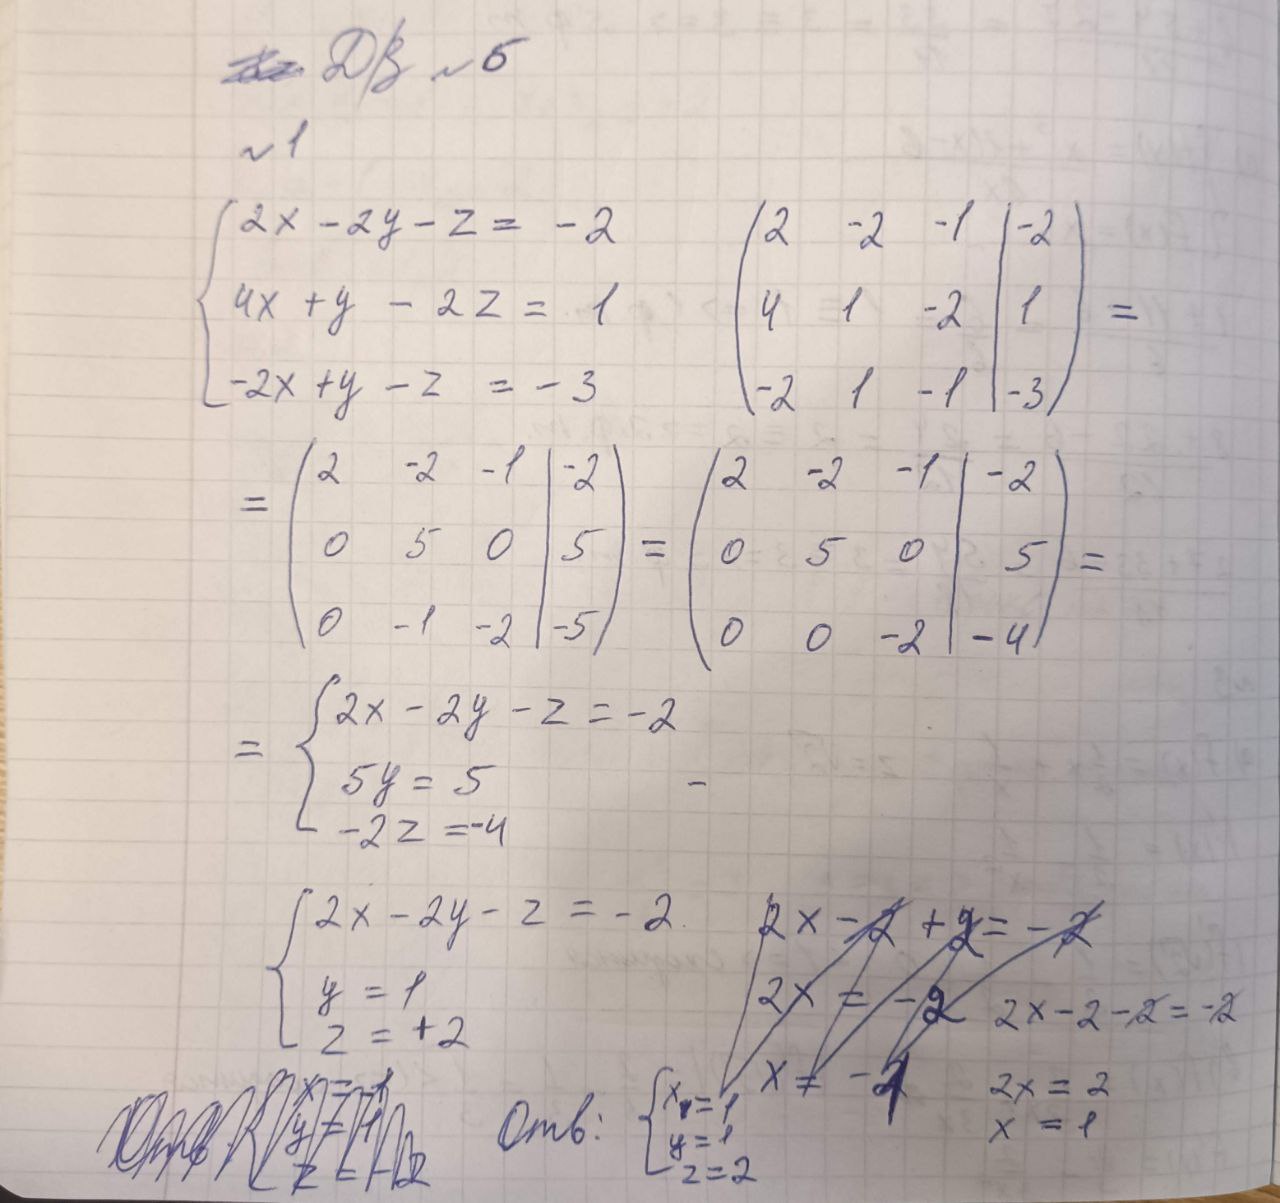 ДЗ №5
№1
2x - 2y - z = -2
4x + y - 2z = 1
-2x + y - z = -3
( 2 -2 -1 | -2 )
( 4 1 -2 | 1 ) =
( -2 1 -1 | -3 )
= ( 2 -2 -1 | -2 )
( 0 5 0 | 5 )
( 0 -1 -2 | -5 )
= ( 2 -2 -1 | -2 )
( 0 5 0 | 5 ) =
( 0 0 -2 | -4 )
= { 2x - 2y - z = -2
5y = 5 -
-2z = -4
{ 2x - 2y - z = -2
y = 1
z = +2
2x - 2 + 2 = -2
2x = -2
x = -1
2x - 2 - 2 = -2
2x = 2
x = 1
x = 1
y = 1
Отв: { x = 1
y = 1
z = 2